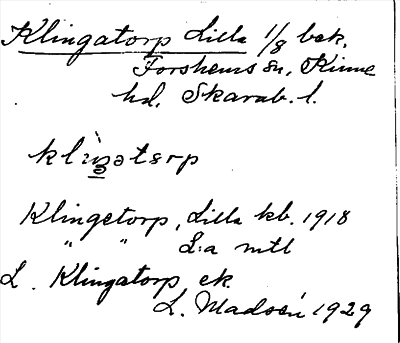 Klingatorp Lilla 1/8 bek.
Forshems sn, Kinne
hd, Skarab. l.
Klingetorp, Lilla kb. 1918
" " L:a mtl
L. Klingatorp ek.
L. Madsén 1929